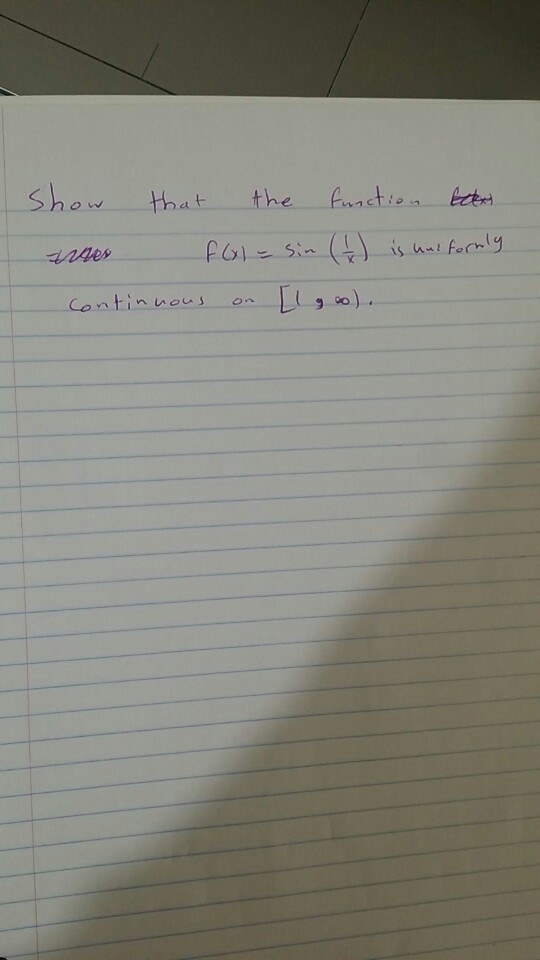 Show that the function
f(x) = sin (1/x) is uniformly
continuous on [1, ∞).